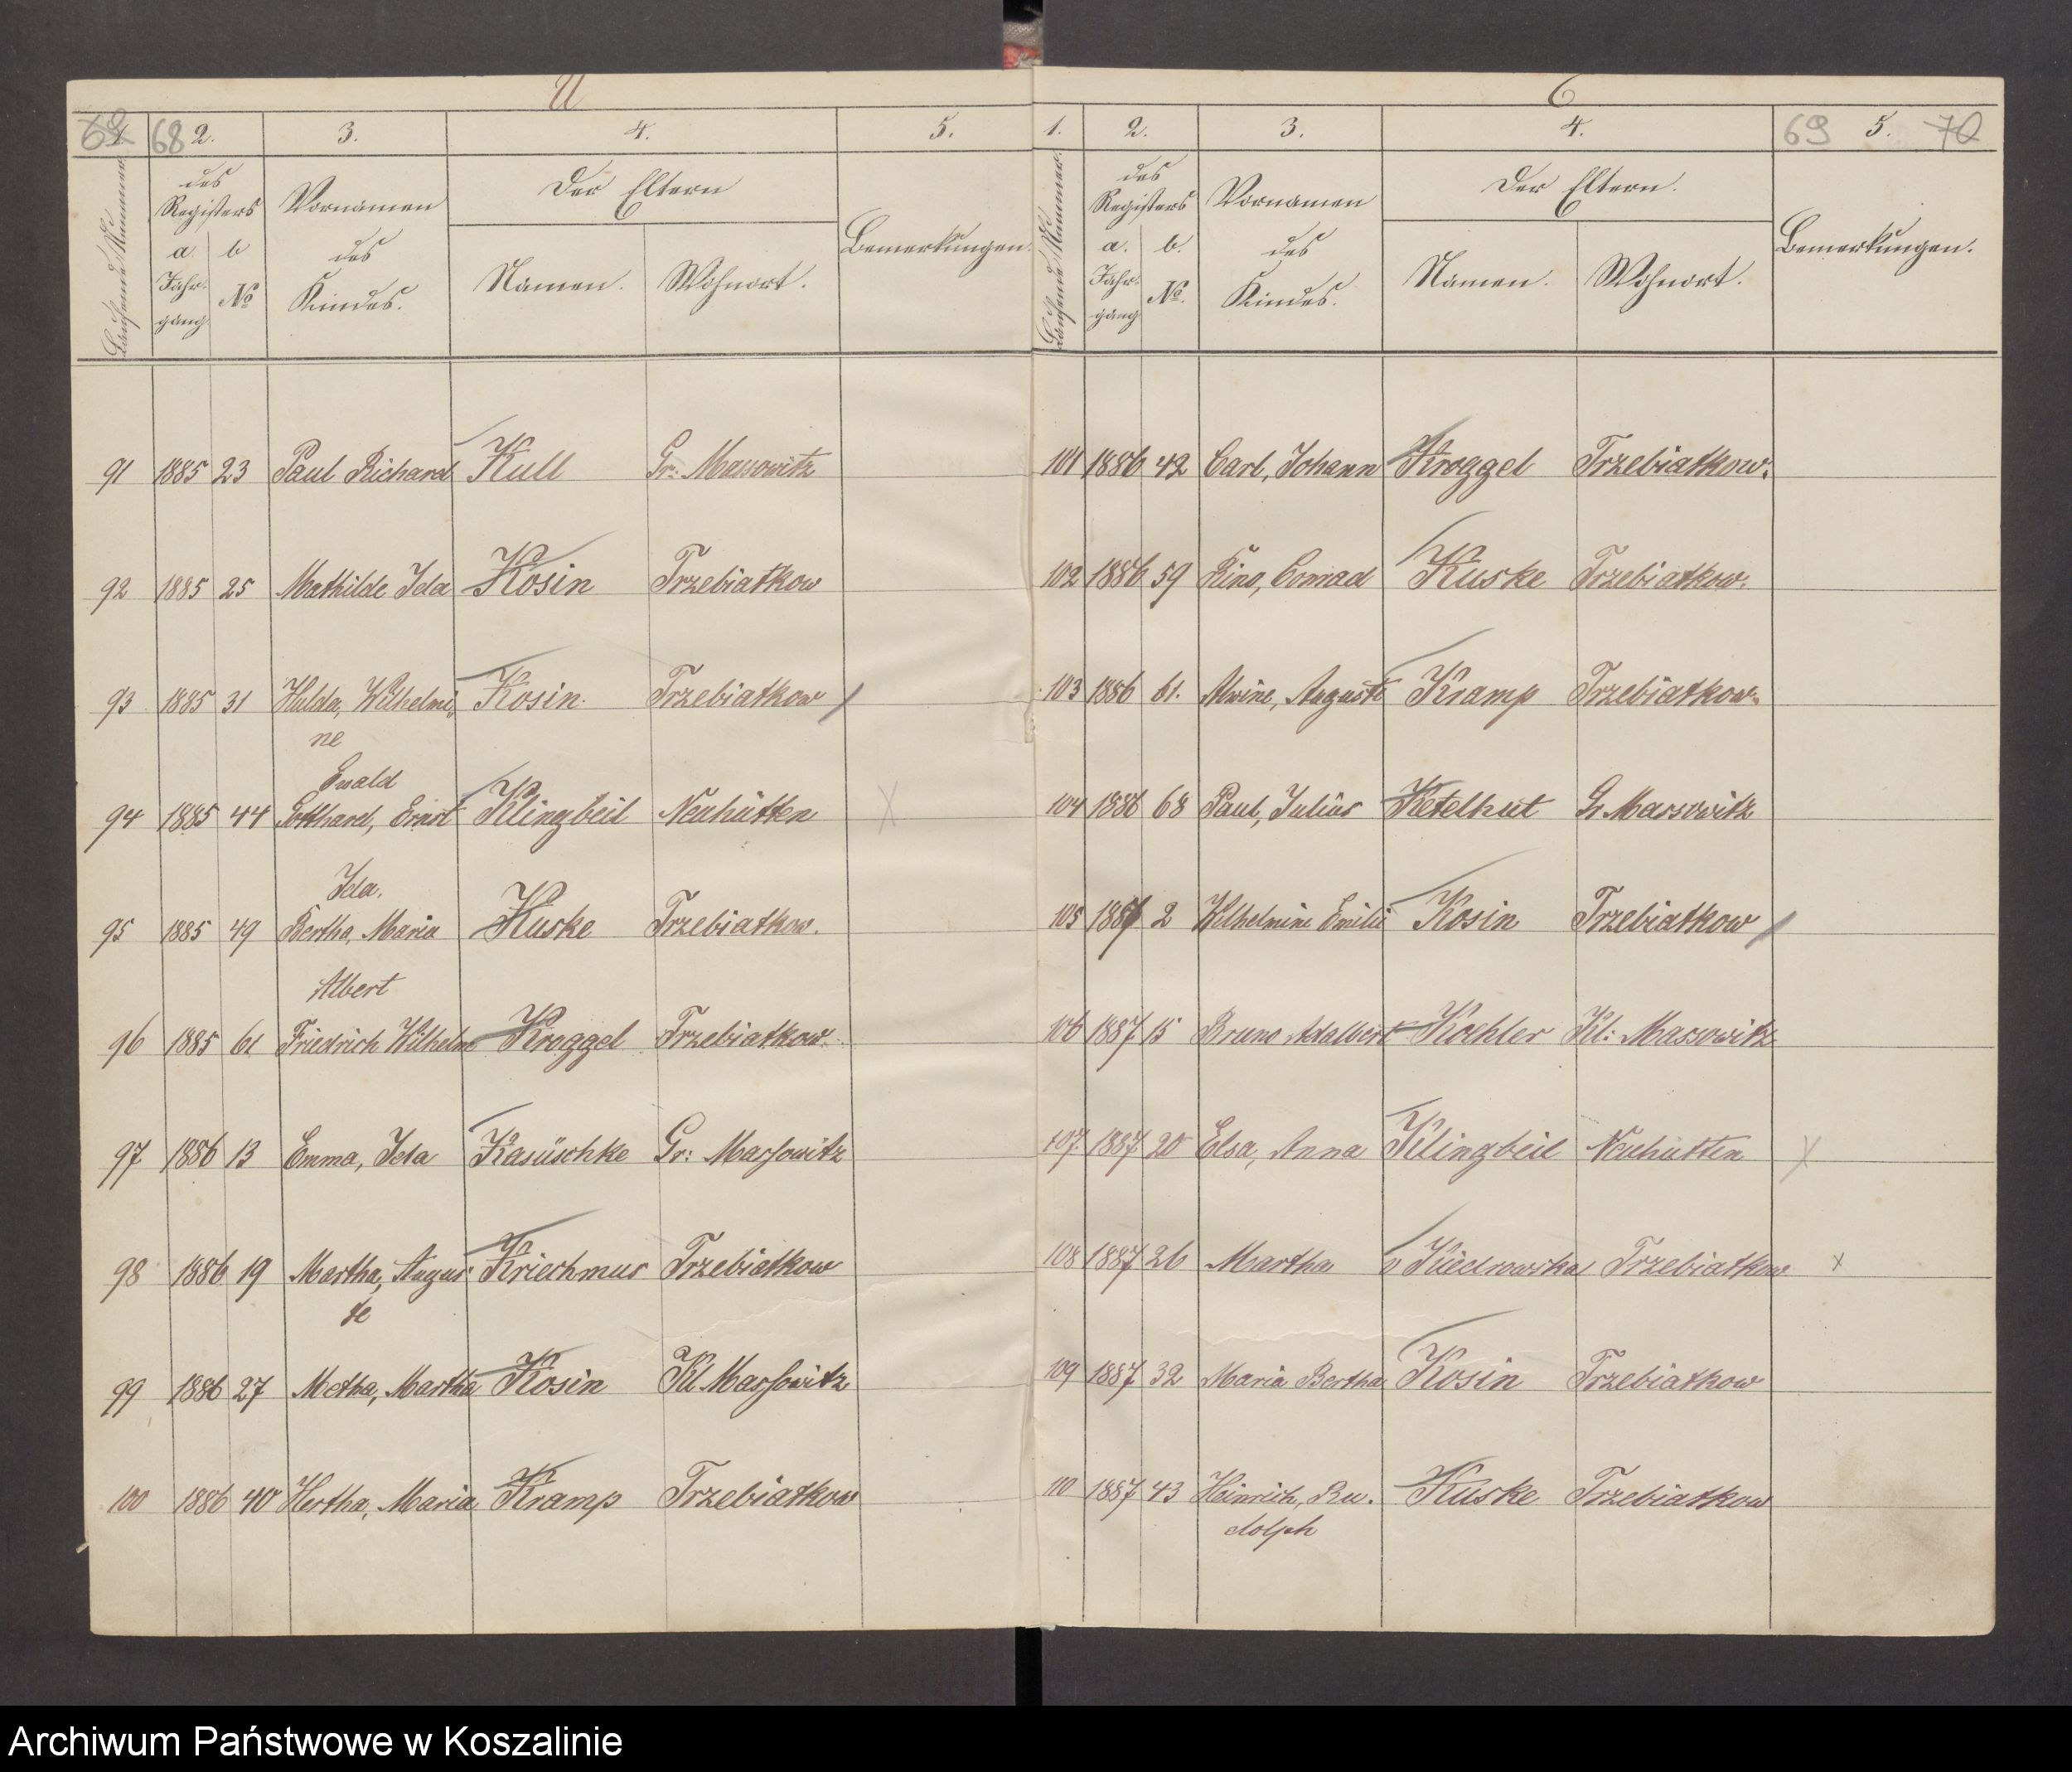 68 2. 3. 4. 5.
Laufende Nummer
des
Registers
a. b
Jahr-
gang.
No
Vornamen
des
Kindes.
Der Eltern
Namen. Wohnort.
Bemerkungen.
91 1885 23 Paul Richard Kull Gr. Massowitz
92 1885 25 Mathilde Ida Kosin Trzebiatkow
93 1885 31 Hulda, Wilhelmi- Kosin. Trzebiatkow
ne
Ewald
94 1885 44 Gotthard, Ernst Klingbeil Neuhütten
Ida.
95 1885 49 Bertha, Maria Kuske Trzebiatkow.
Albert
96 1885 61 Friedrich Wilhelm Kroggel Trzebiatkow.
97 1886 13 Emma, Ida Kasüschke Gr: Massowitz
98 1886 19 Martha, Augus- Kriechmus Trzebiatkow
te
99 1886 27 Metha, Martha Kosin Kl. Massowitz
100 1886 40 Hertha, Maria Kramp Trzebiatkow
1. 2. 3. 4. 69 5. 70
Laufende Nummer.
des
Registers
a. b.
Jahr-
gang
No.
Vornamen
des
Kindes.
Der Eltern.
Namen. Wohnort.
Bemerkungen.
101 1886 42 Carl, Johann Kroggel Trzebiatkow.
102 1886 59 Conrad Kuske Trzebiatkow.
103 1886 61. Alwine, Auguste Kramp Trzebiatkow.
104 1886 68 Paul, Julius Ketelhut Gr Massowitz
105 1887 2 Wilhelmine Emilie Kosin Trzebiatkow
106 1887 15 Bruno Adalbert Koehler Kl: Massowitz
107. 1887 20 Elsa, Anna Klingbeil Neuhütten
108 1887 26 Martha v Kiedrowska Trzebiatkow x
109 1887 32 Maria Bertha Kosin Trzebiatkow
110 1887 43 Heinrich, Ru. Kuske Trzebiatkow
dolph
Archiwum Państwowe w Koszalinie